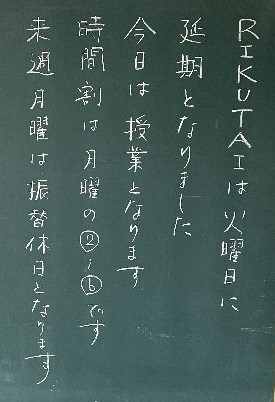 RIKUTAIは火曜日に
延期となりました
今日は授業となります
時間割は月曜の②〜⑥です
来週月曜は振替休日となります